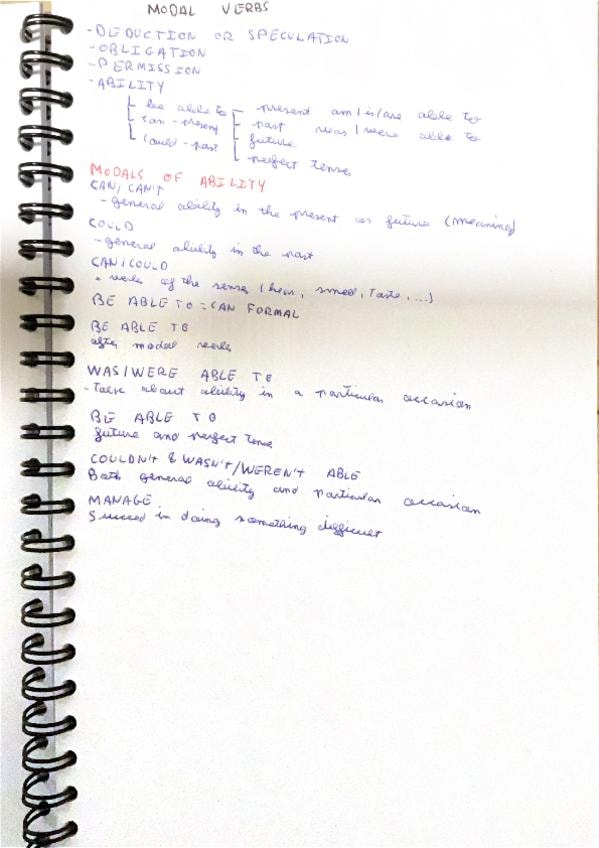 MODAL VERBS
- DEDUCTION OR SPECULATION
- OBLIGATION
- PERMISSION
- ABILITY
be able to - present am/is/are able to
can - present - past was/were able to
future
could - past
perfect tense
MODALS OF ABILITY
CAN/CAN'T
- general ability in the present or future (meaning)
COULD
- general ability in the past
CAN/COULD
verbs of the senses (hear, smell, taste, ...)
BE ABLE TO = CAN FORMAL
BE ABLE TO
after modal verbs
WAS/WERE ABLE TO
- Talk about ability in a particular occasion
BE ABLE TO
future and perfect tense
COULDN'T & WASN'T/WEREN'T ABLE
Both general ability and particular occasion
MANAGE
Succeed in doing something difficult